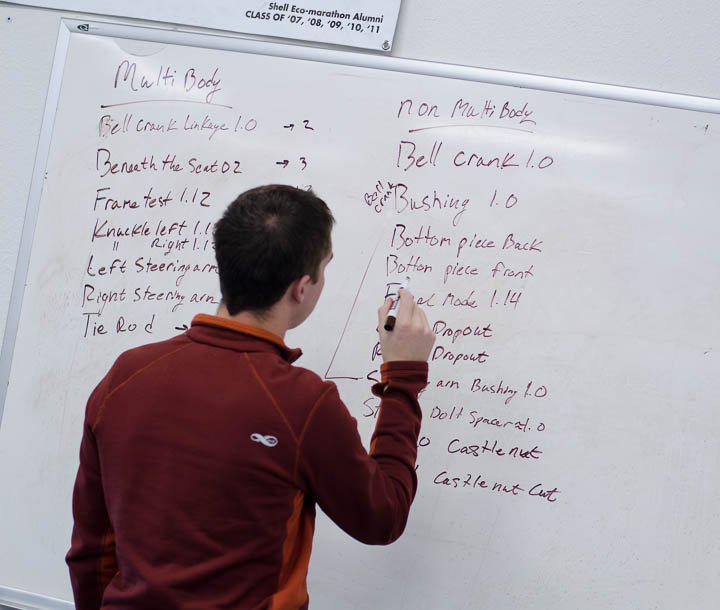 Shell Eco-marathon Alumni
CLASS OF '07, '08, '09, '10, '11
Multi Body
Bell crank Linkage 1.0 → 2
Beneath the Seat 02 → 3
Frame test 1.12
Knuckle left 1.1
" Right 1.1
Left Steering arm
Right Steering arm
Tie Rod →
non Multi Body
Bell crank 1.0
Bell crank
Bushing 1.0
Bottom piece Back
Botton piece front
Mode 1.14
Dropout
Dropout
arm Bushing 1.0
Bolt Spacer 1.0
Castle nut
Castle nut Cut